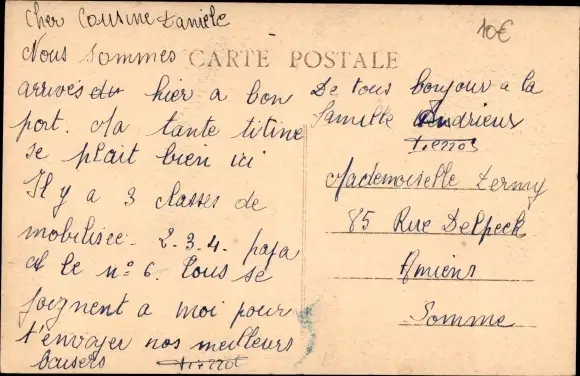 Cher Cousine Danièle
10€
CARTE POSTALE
Nous sommes
arrivés du hier a bon
port. Ma tante titine
se plait bien ici
Il y a 3 classes de
mobilisée. 2-3-4. papa
a le n° 6. Tous se
joignent a moi pour
t'envoyer nos meilleurs
baisers Pierrot
De tous bonjour a la
famille Andrieux
Pierrot
Mademoiselle
85 Rue Delpech
Amiens
Somme